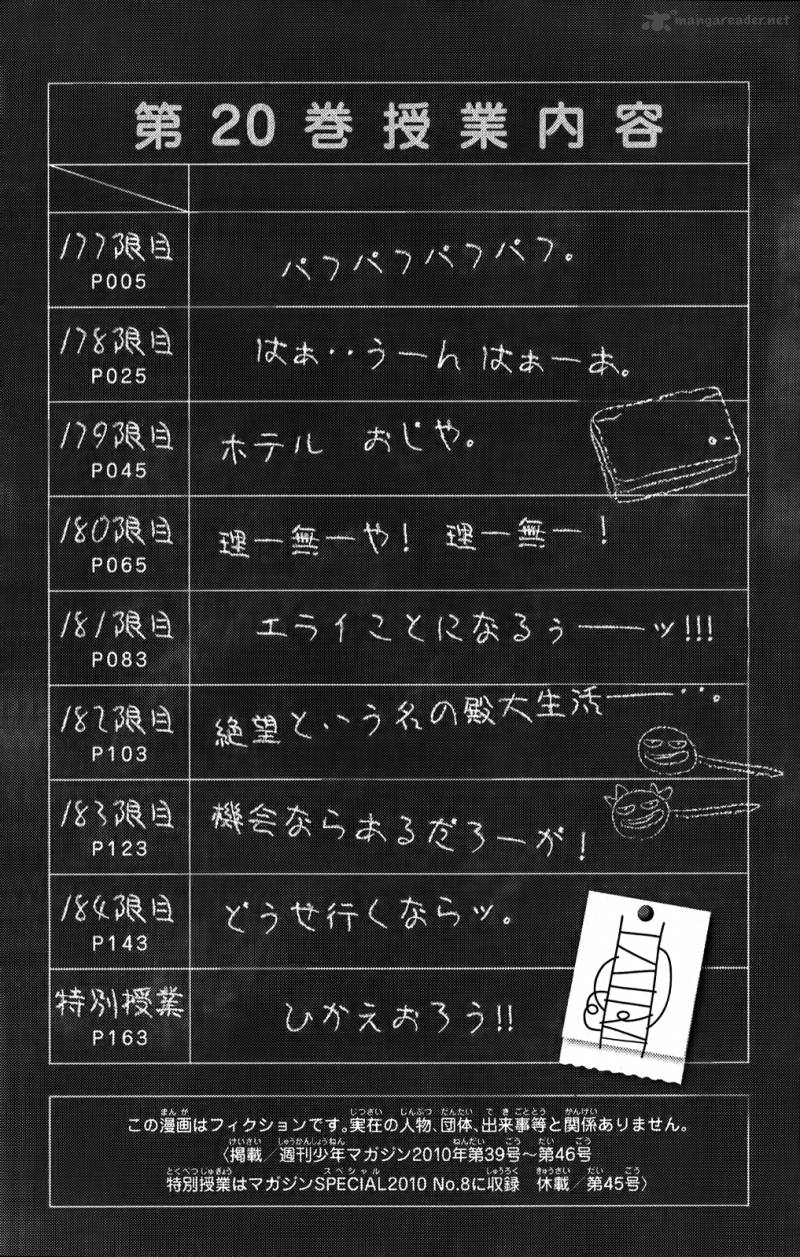 mangareader.net
第20巻授業内容
177限目
P005
パフパフパフパフ。
178限目
P025
はぁ‥うーん はぁーあ。
179限目
P045
ホテル おじや。
180限目
P065
理一無一や! 理一無一!
181限目
P083
エライことになるぅ――ッ!!!
182限目
P103
絶望という名の殿大生活――‥。
183限目
P123
機会ならあるだろーが!
184限目
P143
どうせ行くならッ。
特別授業
P163
ひかえおろう!!
この漫画はフィクションです。実在の人物、団体、出来事等と関係ありません。
〈掲載/週刊少年マガジン2010年第39号~第46号
特別授業はマガジンSPECIAL2010 No.8に収録 休載/第45号〉